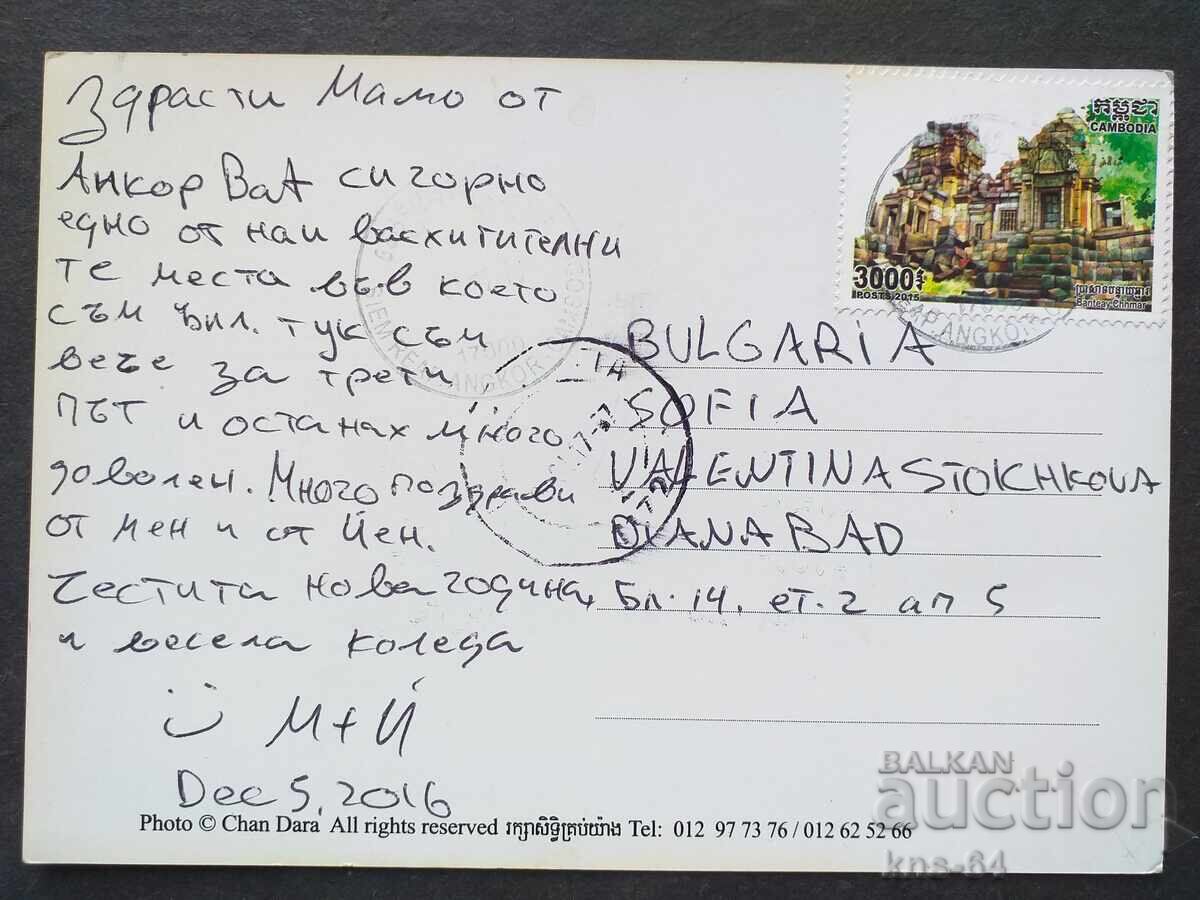 Здрасти Мамо от
Анкор Ват сигорно
едно от наи васхитителни
те места във което
съм бил. тук съм
вече за трети
път и останах много
доволен. Много поздрави
от мен и от Йен.
Честита нова година
и весела коледа
М+Й
Dec 5, 2016
កម្ពុជា
CAMBODIA
3000៛
POSTS 2015
Banteay Chhmar
17000
SIEM REAP ANGKOR
ANGKOR
BULGARIA
SOFIA
VALENTINA STOICHKOVA
DIANABAD
Бл. 14. ет. 2 ап 5
Photo © Chan Dara All rights reserved រក្សាសិទ្ធិគ្រប់យ៉ាង Tel: 012 97 73 76 / 012 62 52 66
BALKAN
auction
kns-64